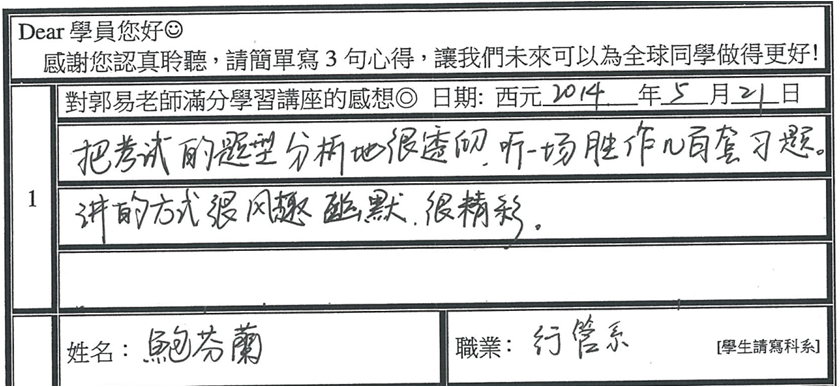 Dear 學員您好☺
感謝您認真聆聽，請簡單寫 3 句心得，讓我們未來可以為全球同學做得更好!
對郭易老師滿分學習講座的感想◎ 日期: 西元 2014 年 5 月 21 日
1
把考试的题型分析地很透彻，听一场胜作几百套习题。
讲的方式很风趣幽默，很精彩。
姓名：鮑芬蘭
職業：行管系 [學生請寫科系]